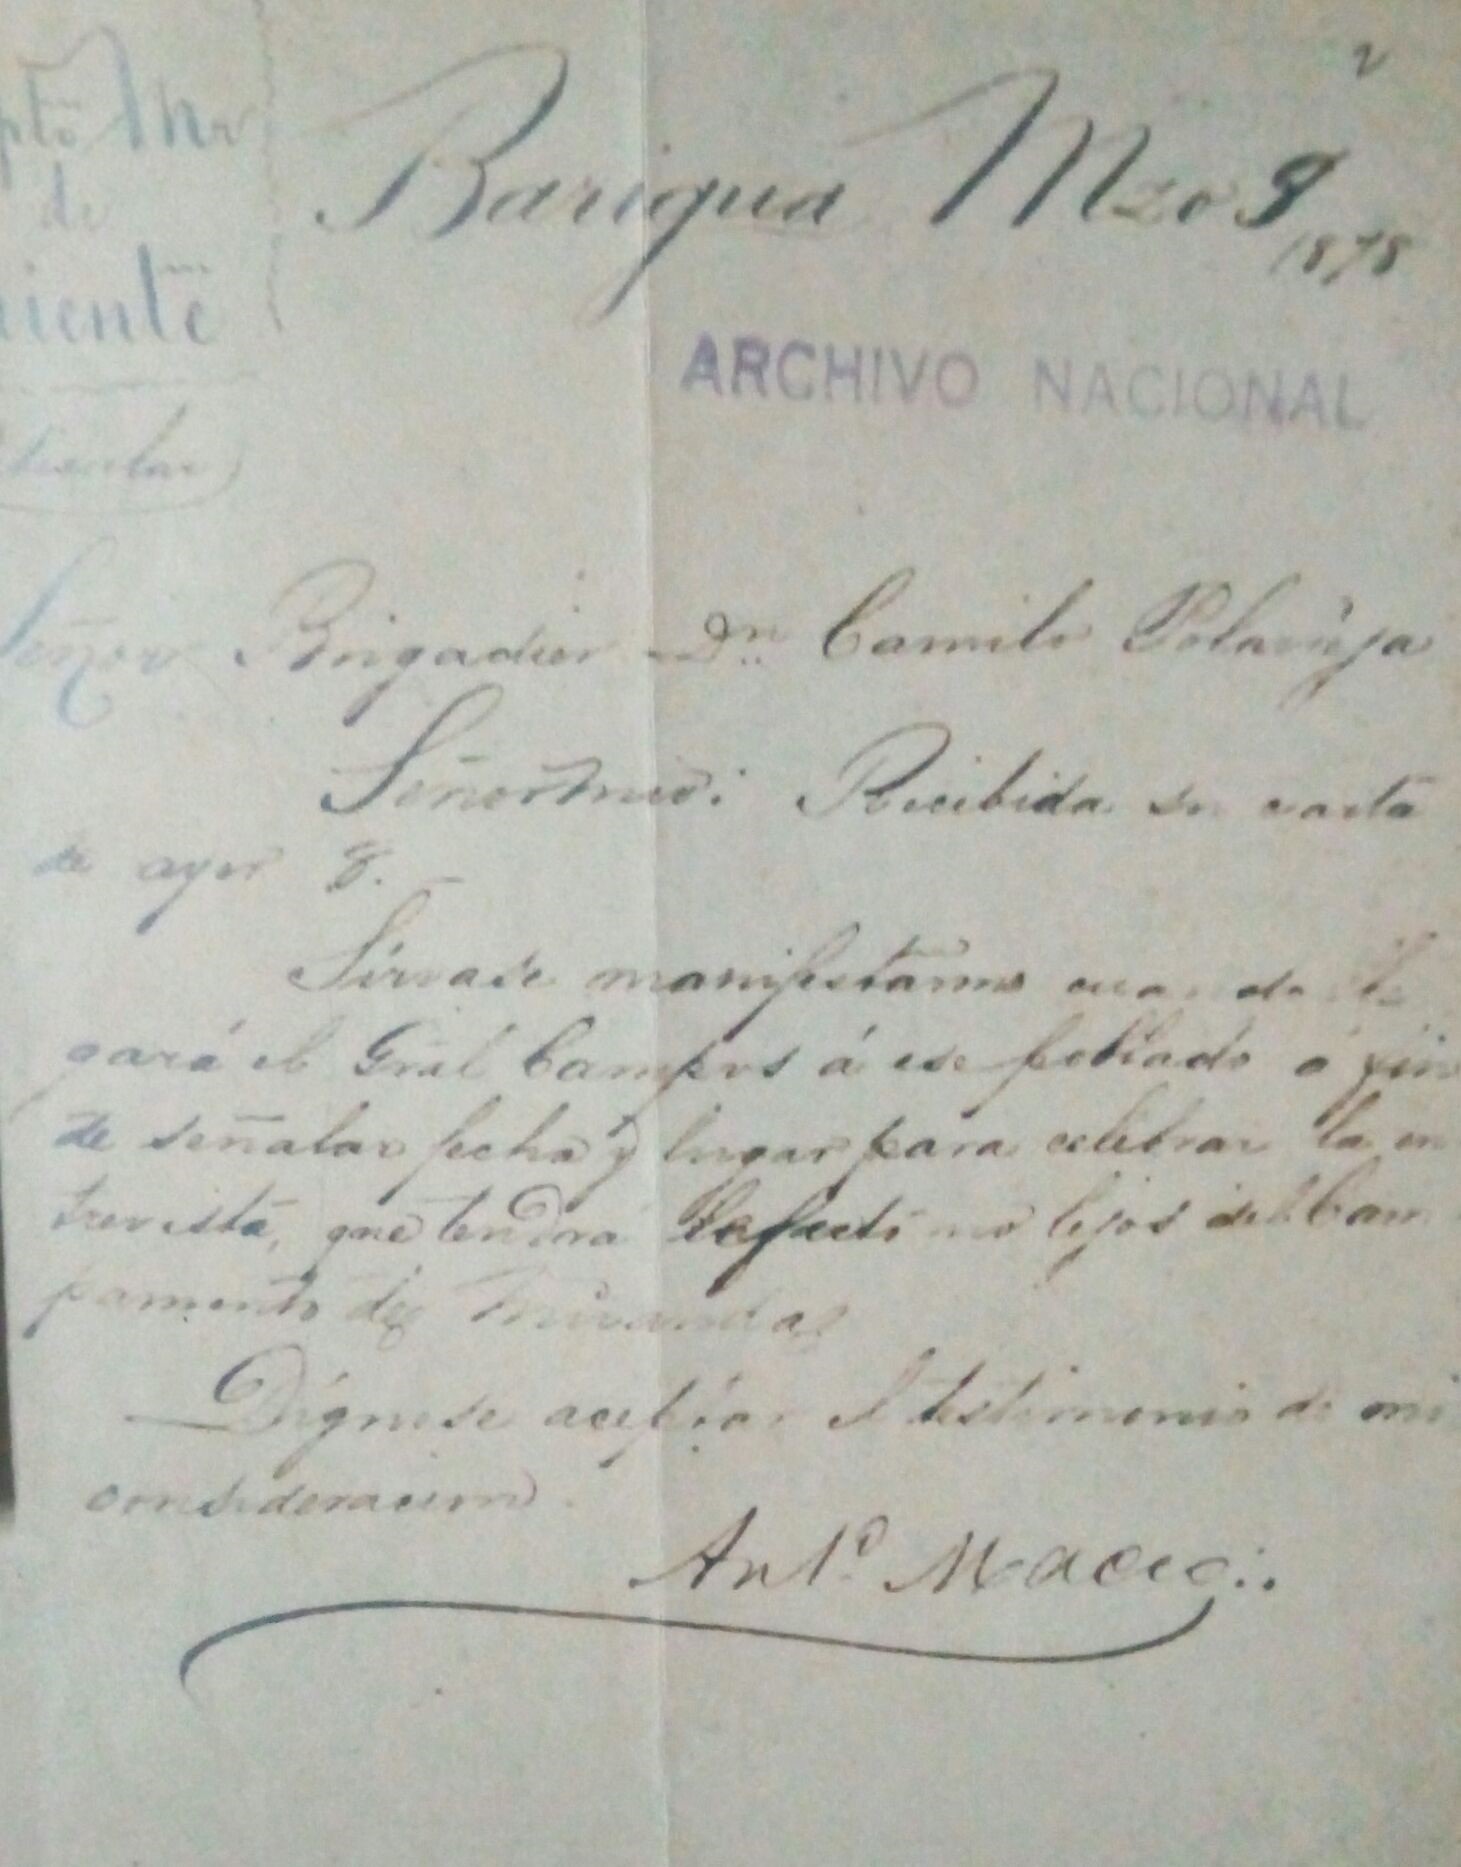 2
Barigua Mzo 9
1878
de
ARCHIVO NACIONAL
Señor Brigadier Dn Camilo Polavieja
Señor mio: Recibida su carta
de ayer 8.
Sirvase manifestarme cuando lle
gará el Gral Campos á ese poblado á fin
de señalar fecha y lugar para celebrar la en
trevista, que tendrá efecto no lejos del Cam
pamento de Miranda
Dígnese aceptar el testimonio de mi
consideracion.
Anto. Maceo